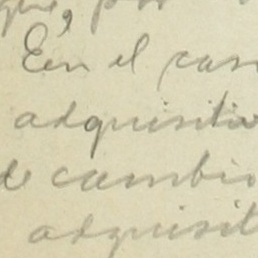 En el cas
adquisitiv
de cambio
adquisit